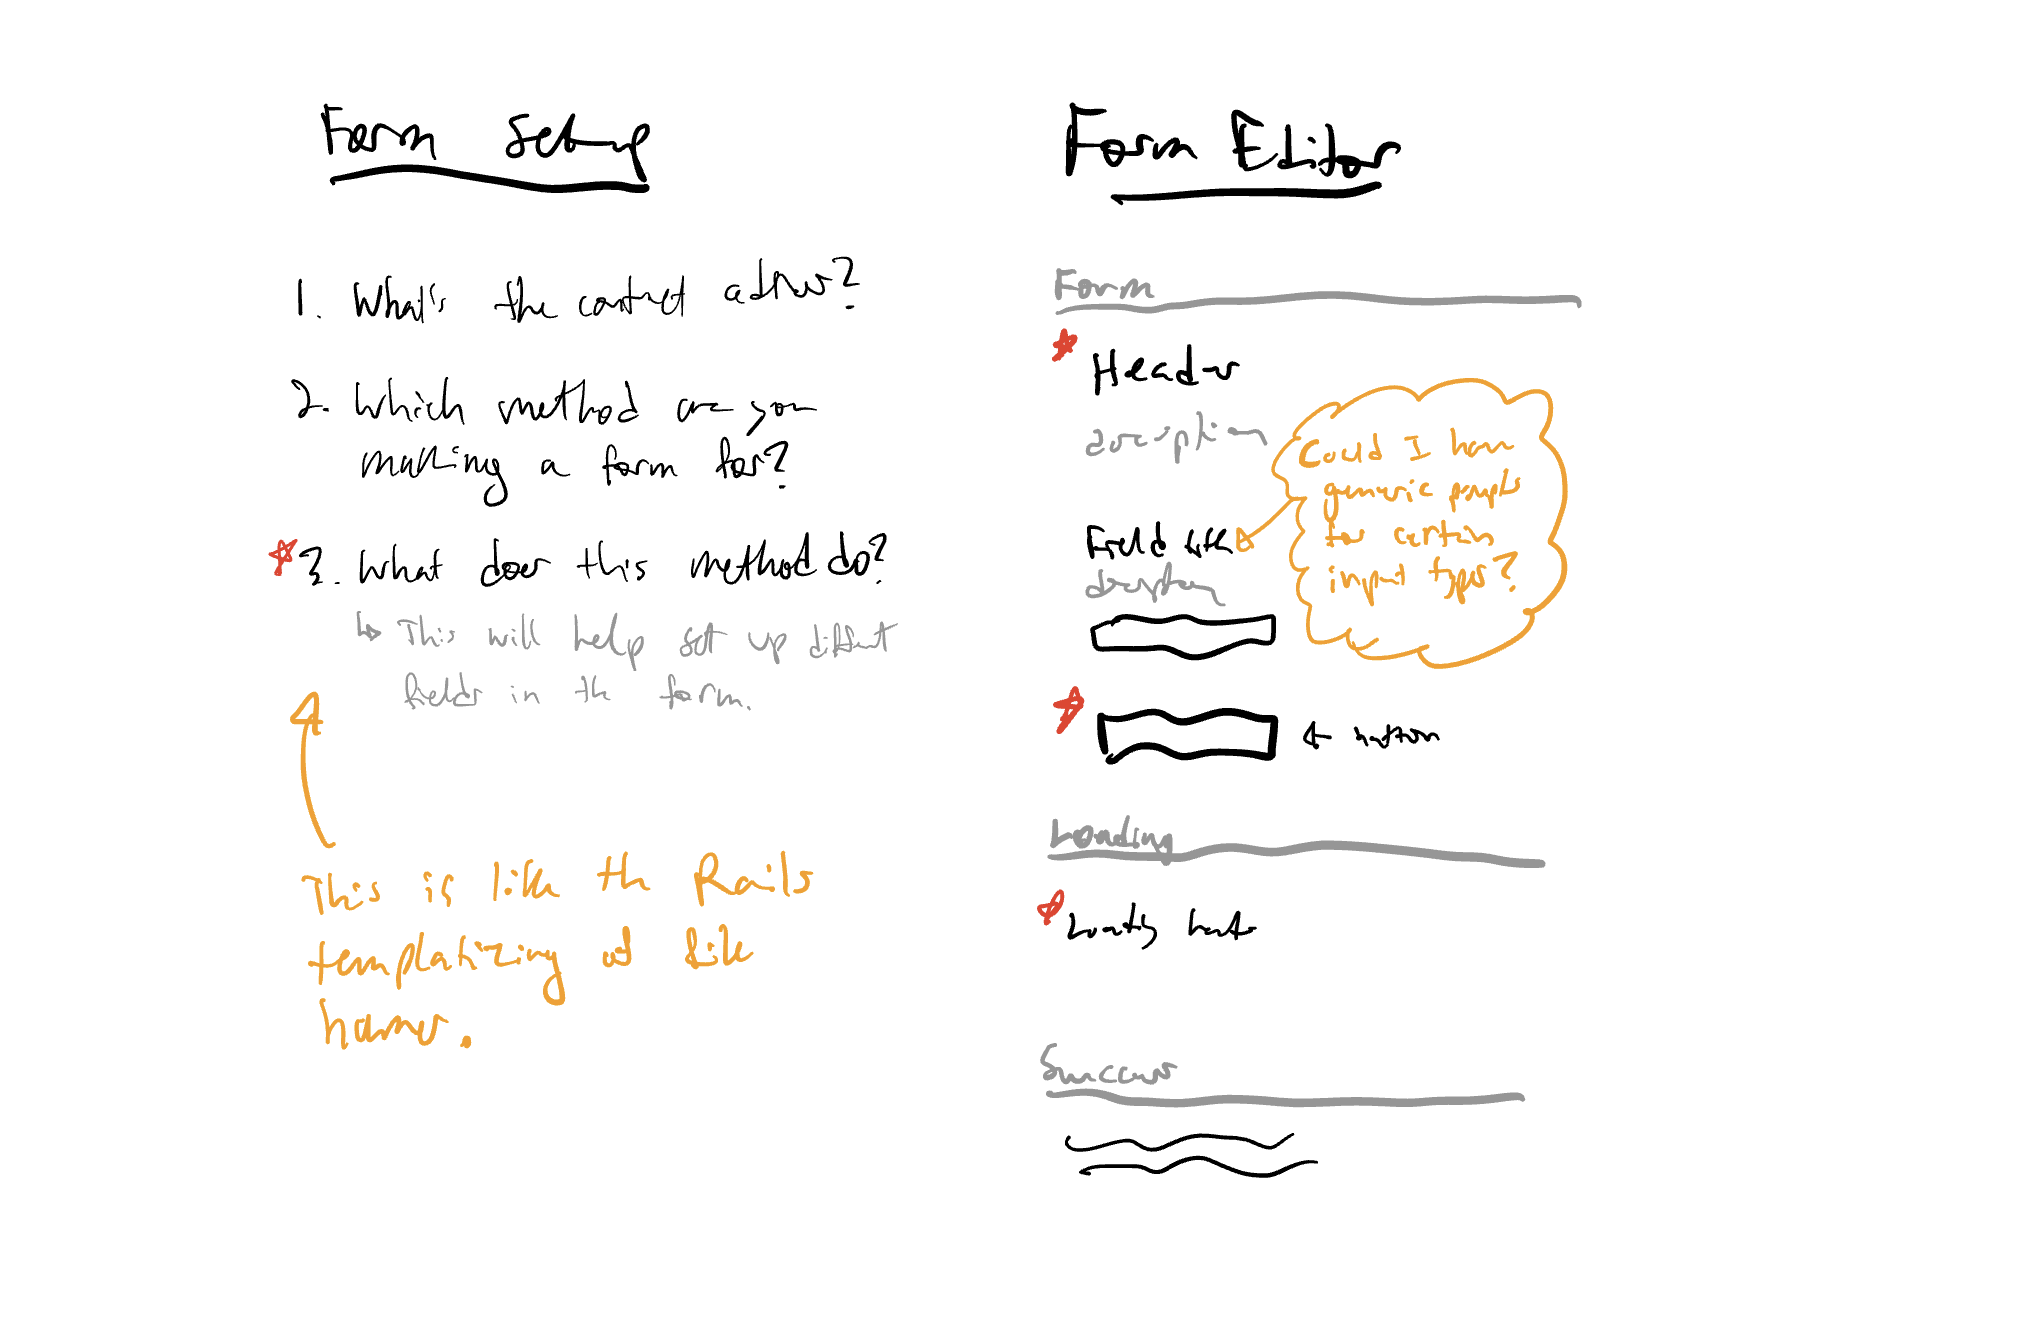 Form Setup
1. What's the contract address?
2. Which method are you
making a form for?
3. What does this method do?
↳ This will help set up different
fields in the form.
This is like the Rails
templatizing of file
names.
Form Editor
Form
Header
description
Field title
description
Could I have
generic prompts
for certain
input types?
← button
Loading
Loading
Success